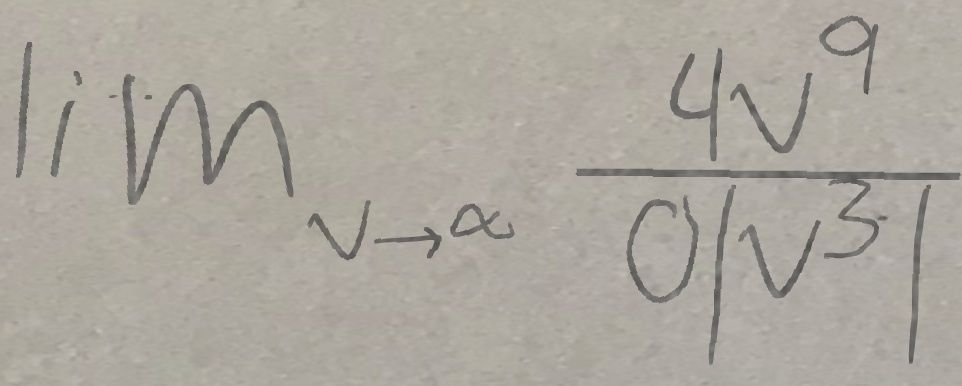 \lim_{v \to \infty} \frac{4v^9}{0|v^3|}